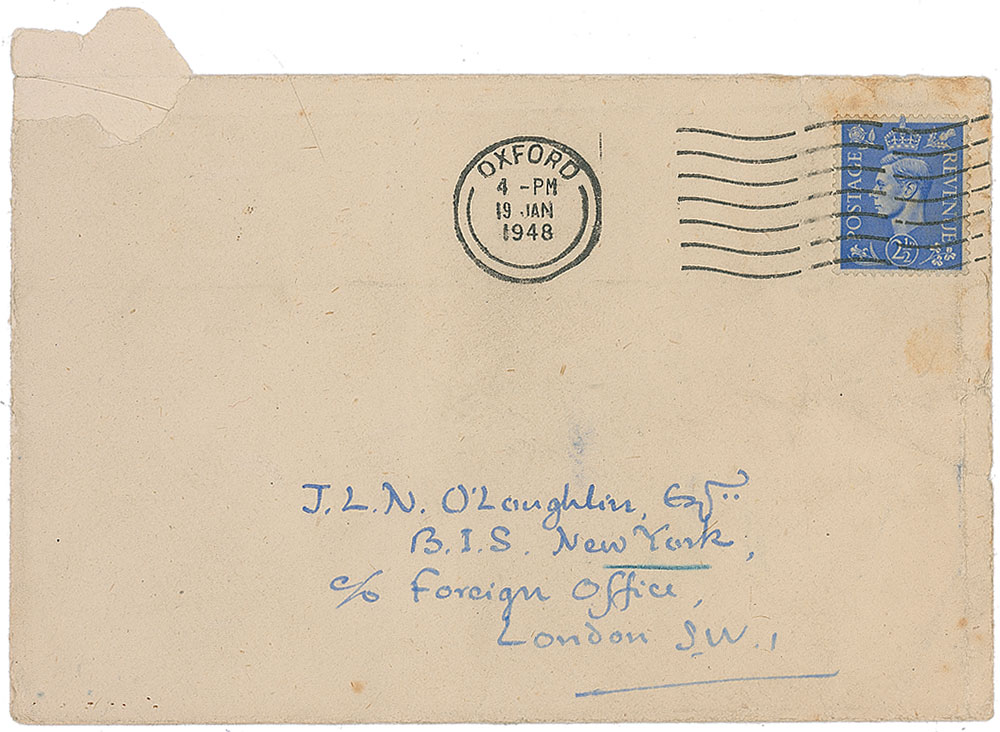 OXFORD
4 - PM
19 JAN
1948
POSTAGE REVENUE
2½
J.L.N. O'Loughlin, Esqr.
B.I.S. New York,
c/o Foreign Office,
London S.W.1